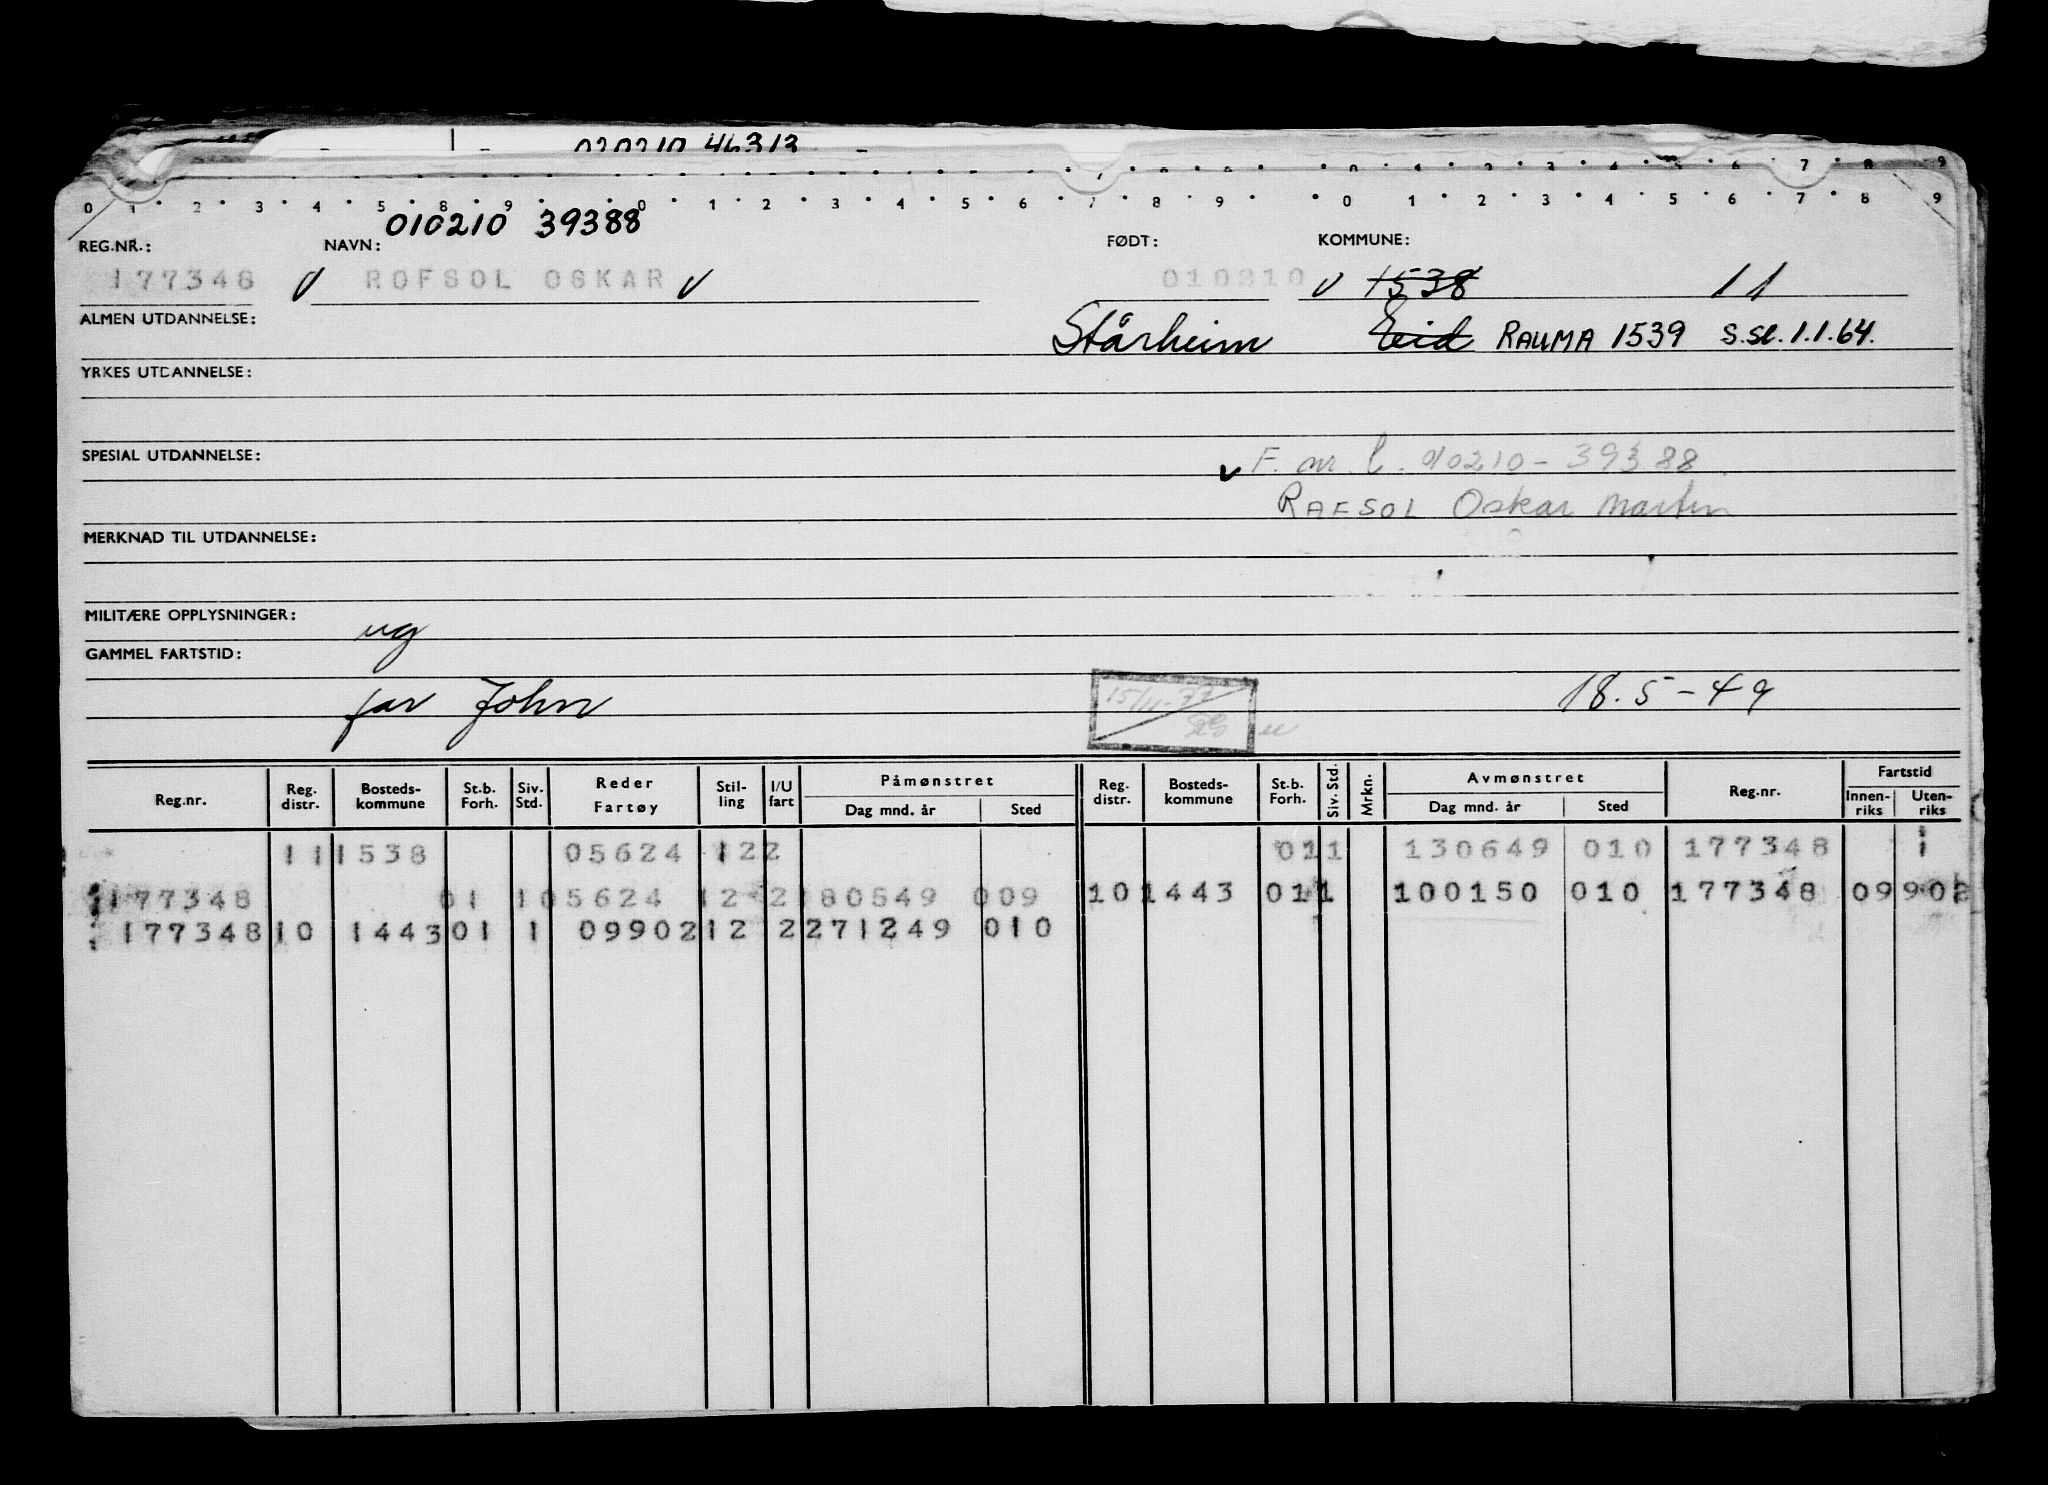 020210 46313
7 8 9 0 1 2 3 4 5 6 7 8 9
0 1 2 3 4 5 8 9 0 1 2 3 4 5 6 7 8 9 0 1 2 3 4 5 6 7 8 9
010210 39388
REG.NR.: NAVN: FØDT: KOMMUNE:
177348 ROFSOL OSKAR 010210 1538 11
ALMEN UTDANNELSE: Stårheim Eid RAUMA 1539 S.Sl. 1.1.64.
YRKES UTDANNELSE:
SPESIAL UTDANNELSE: F. nr. 010210-39388
RAFSOL Oskar Martin
MERKNAD TIL UTDANNELSE:
MILITÆRE OPPLYSNINGER: ug
GAMMEL FARTSTID:
far John 15/11-77 18.5-49
Reg.nr. Reg. distr. Bosteds-kommune St.b. Forh. Siv. Std. Reder Fartøy Stil-ling I/U fart Påmønstret Dag mnd. år Sted Reg. distr. Bosteds-kommune St.b. Forh. Siv. Std. Mrkn. Avmønstret Dag mnd. år Sted Reg.nr. Fartstid Innen-riks Uten-riks
11 1538 05624 12 2 01 1 130649 010 177348 1
177348 01 1 05624 12 2 180549 009 10 1443 01 1 100150 010 177348 09902
177348 10 1443 01 1 09902 12 2 271249 010